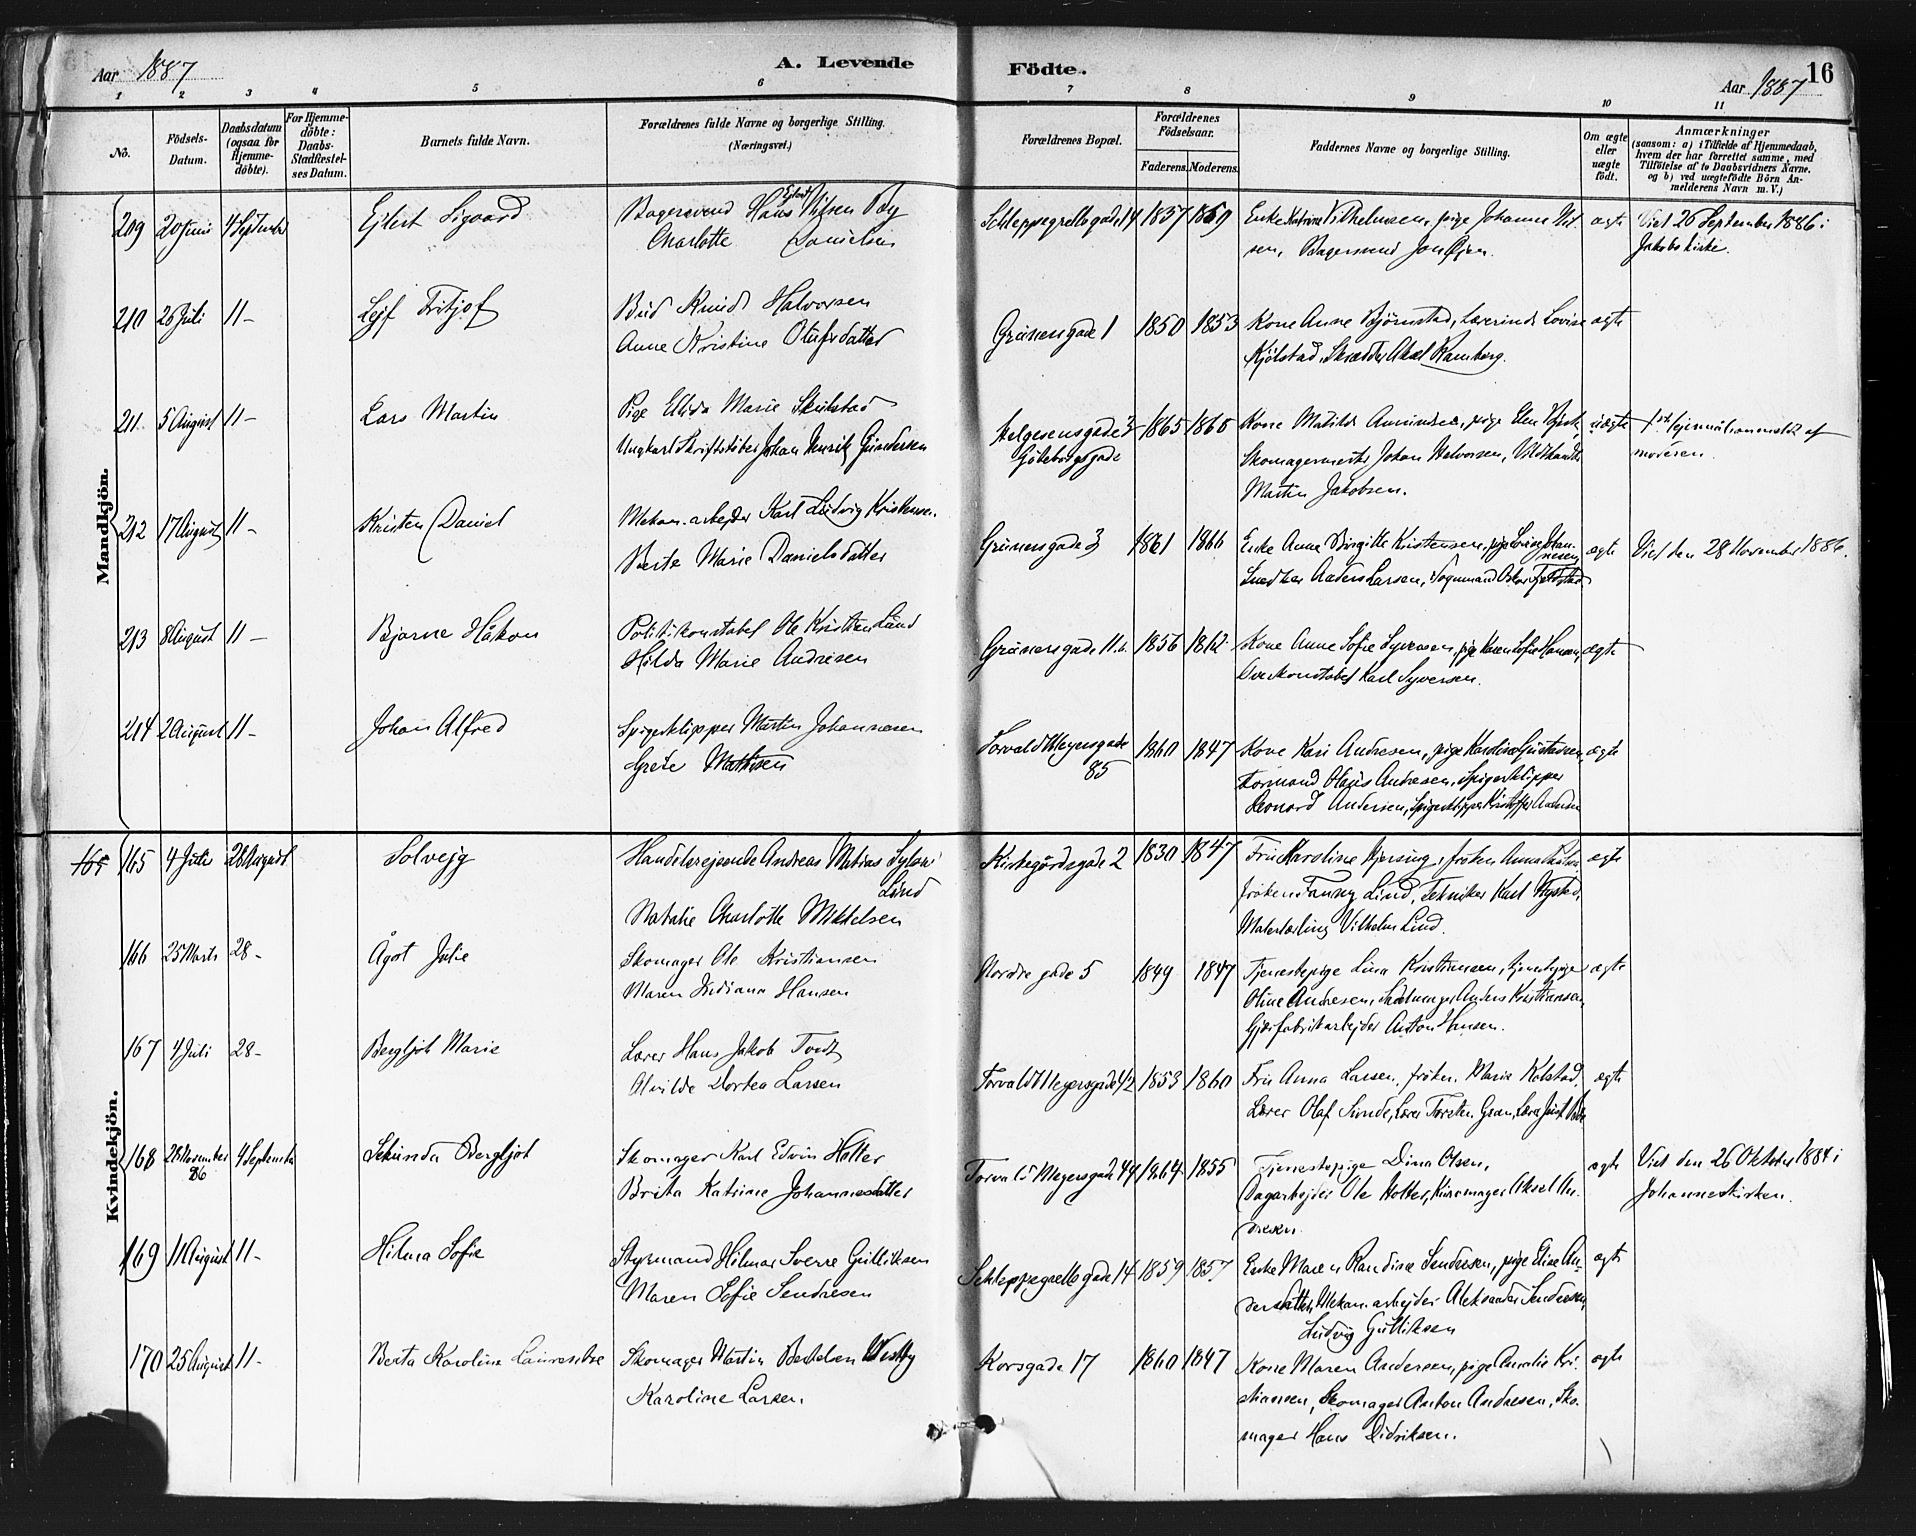 Aar 1887
A. Levende Födte.
16
Aar 1887
1 2 3 4 5 6 7 8 9 10 11
No.
Födsels-Datum.
Daabsdatum (ogsaa for Hjemme-döbte).
For Hjemme-döbte: Daabs-Stadfæstel-ses Datum.
Barnets fulde Navn.
Forældrenes fulde Navne og borgerlige Stilling. (Næringsvei.)
Forældrenes Bopæl.
Forældrenes Födselsaar.
Faderens. Moderens.
Faddernes Navne og borgerlige Stilling.
Om ægte eller uægte födt.
Anmærkninger
(saasom: a) i Tilfælde af Hjemmedaab,
hvem der har forrettet samme, med
Tilföielse af to Daabsvidners Navne,
og b) ved uægtefödte Börn An-
melderens Navn m. V.)
Mandkjön.
209 20 Juni 4 September Ejlert Sigaard
Bagersvend Hans Nilsen By
Charlotte Danielsen
Schleppegrellsgade 14 1857 1860
Enke Katrine Vilhelmsen, pige Johanne Nil-
sen, Bagersvend Jon Øien.
ægte
Viet 26 September 1886 i
Jakobskirke.
210 26 Juli 11- Lejf Fritjof
Bud Knud Halvorsen
Anne Kristine Olufsdatter
Grünersgade 1 1850 1853
Kone Anne Bjørnstad, Lærerinde Lovise
Kjølstad, Skrædder Aksel Ramberg.
ægte
211 5 August 11- Lars Martin
Pige Elida Marie Skulstad
Ungkarl Skriftstøber Johan Henrik Gundersen
Helgesensgade 3
Göteborggade
1865 1865
Kone Matilde Amundsen, pige Elen
Skomagermester Johan Halvorsen,
Martin Jakobsen.
uægte
1ste lejermaal anmeldt af
moderen.
212 17 August 11- Kristen Daniel
Mekan. arbejder Karl Ludvig Kristensen.
Berte Marie Danielsdatter
Grünersgade 3 1861 1866
Enke Anne Birgitte Kristensen, pige Lovise Johan-
nesen,
Snedker Anders Larsen,
ægte
Viet den 28 November 1886.
213 8 August 11- Bjarne Håkon
Politikonstabel Ole Kristian Lund
Hilda Marie Andresen
Grünersgade 11.b. 1856 1862
Kone Anne Sofie Syversen, pige Karen Sofie Hansen,
Overkonstabel Karl Syversen.
ægte
214 2 August 11- Johan Alfred
Spigerklipper Martin Johannesen
Grete Mathisen
Torvald Meyersgade
85
1860 1847
Kone Kari Andresen, pige Karoline Gustavsen,
Formand Olaus Andresen, Spigerklipper
Leonard Andersen, Spigerklipper Kristoffer Andersen
ægte
Kvindekjön.
165 165 4 Juli 28 August Solvejg
Handelsrejsende Andreas Matias Sylow
Lund
Natalie Charlotte Mikkelsen
Kirkegårdsgade 2 1830 1847
Fru Karoline Hjersing, frøken Anna
frøken Fanny Lind, Tekniker Karl Nysted,
Malerlærling Vilhelm Lind.
ægte
166 25 Marts 28- Ågot Julie
Skomager Ole Kristiansen
Maren Indiana Hansen
Nordre gade 5 1849 1847
Tjenestepige Lina Kristiansen, tjenestepige
Oline Andresen, Anders Kristiansen,
Gjærfabrikarbejder Anton Hansen.
ægte
167 4 Juli 28- Bergljot Marie
Lærer Hans Jakob Tvedt
Alvilde Dortea Larsen
Torvald Meyersgade 42 1853 1860
Fru Anna Larsen, frøken Marie Kolstad,
Lærer Olaf Sunde, Lærer Torsten Gran, Lærer
ægte
168 28 November 86 4 September Sekunda Bergljot
Skomager Karl Edvin Holter
Brita Katrine Johannesdatter
Torvald Meyersgade 44 1864 1855
Tjenestepige Dina Olsen,
Dagarbejder Ole Holter, Kurvmager Aksel An-
dresen.
ægte
Viet den 26 Oktober 1884 i
Johanneskirken.
169 11 August 11- Hilma Sofie
Styrmand Hilmar Sverre Gulliksen
Maren Sofie Sendresen
Schleppegrellsgade 14 1859 1857
Enke Maren Randine Sendresen, pige Elise An-
dersdatter, Mekan. arbejder Aleksander Sendresen,
Ludvig Gulliksen
ægte
170 25 August 11- Berta Karoline
Skomager Martin Bertelsen Westby
Karoline Larsen.
Korsgade 17 1860 1847
Kone Maren Andersen, pige Amalie Kri-
stiansen, Skomager Anton Andresen, Sko-
mager Hans Didriksen.
ægte